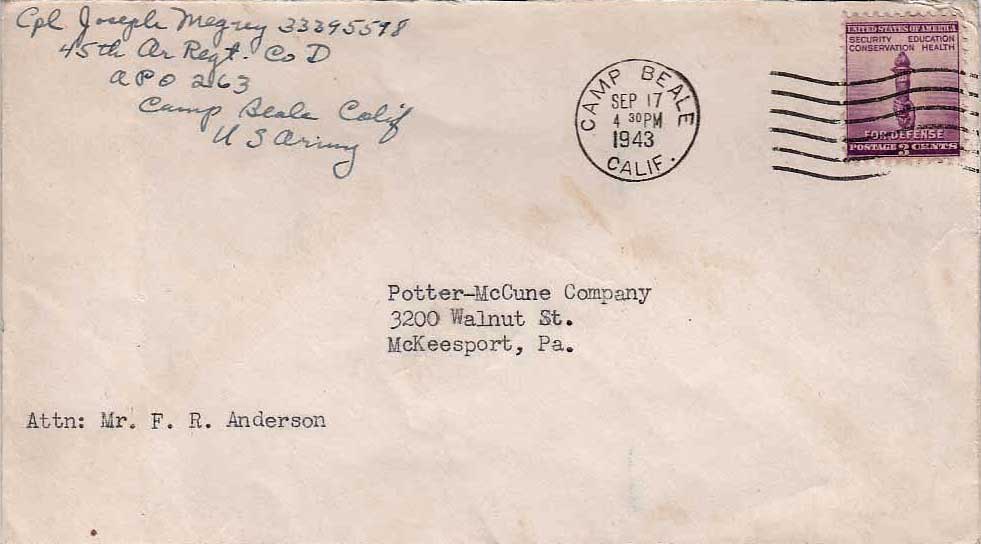 Cpl Joseph Megrey 33395598
45th Ar Regt. Co D
APO 263
Camp Beale Calif
U S Army
CAMP BEALE
SEP 17
4 30 PM
1943
CALIF.
UNITED STATES OF AMERICA
SECURITY EDUCATION
CONSERVATION HEALTH
FOR DEFENSE
POSTAGE 3 CENTS
Potter-McCune Company
3200 Walnut St.
McKeesport, Pa.
Attn: Mr. F. R. Anderson